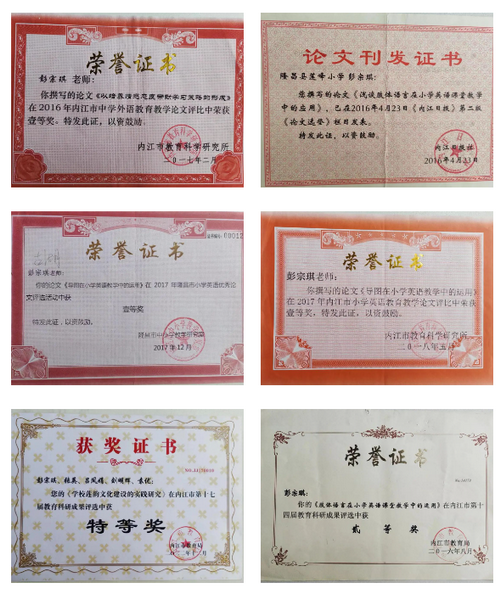 荣誉证书
彭宗琪 老师：
你撰写的论文《以培养情感态度帮助学习策略的形成》
在2016年内江市中学外语教育教学论文评比中荣获
壹等奖。特发此证，以资鼓励。
内江市教育科学研究所
二〇一七年二月
论文刊发证书
隆昌县莲峰小学 彭宗琪：
您撰写的论文《浅谈肢体语言在小学英语课堂教学
中的应用》，已在2016年4月23日《内江日报》第二版
《论文选登》栏目发表。
特发此证，以资鼓励。
内江日报社
2016年4月23日
荣誉证书
彭宗琪老师：
你的论文《导图在小学英语教学中的运用》在 2017 年隆昌市小学英语优秀论
文评选活动中获
壹等奖
特发此证，以资鼓励。
隆昌市中小学教学研究室
2017 年 12 月
荣誉证书
彭宗琪老师：
你撰写的论文《导图在小学英语教学中的运用》
在 2017 年内江市小学英语教育教学论文评比中荣获
壹等奖。特发此证，以资鼓励。
内江市教育科学研究所
二〇一八年五月
获奖证书
彭宗琪、张英、吕凤娟、彭明辉、袁优：
您的《学校莲韵文化建设的实践研究》在内江市第十七
届教育科研成果评选中获
特等奖
内江市教育局
荣誉证书
彭宗琪：
你的《肢体语言在小学英语课堂教学中的运用》在内江市第十
四届教育科研成果评选中获
贰等奖
内江市教育局
二〇一六年八月